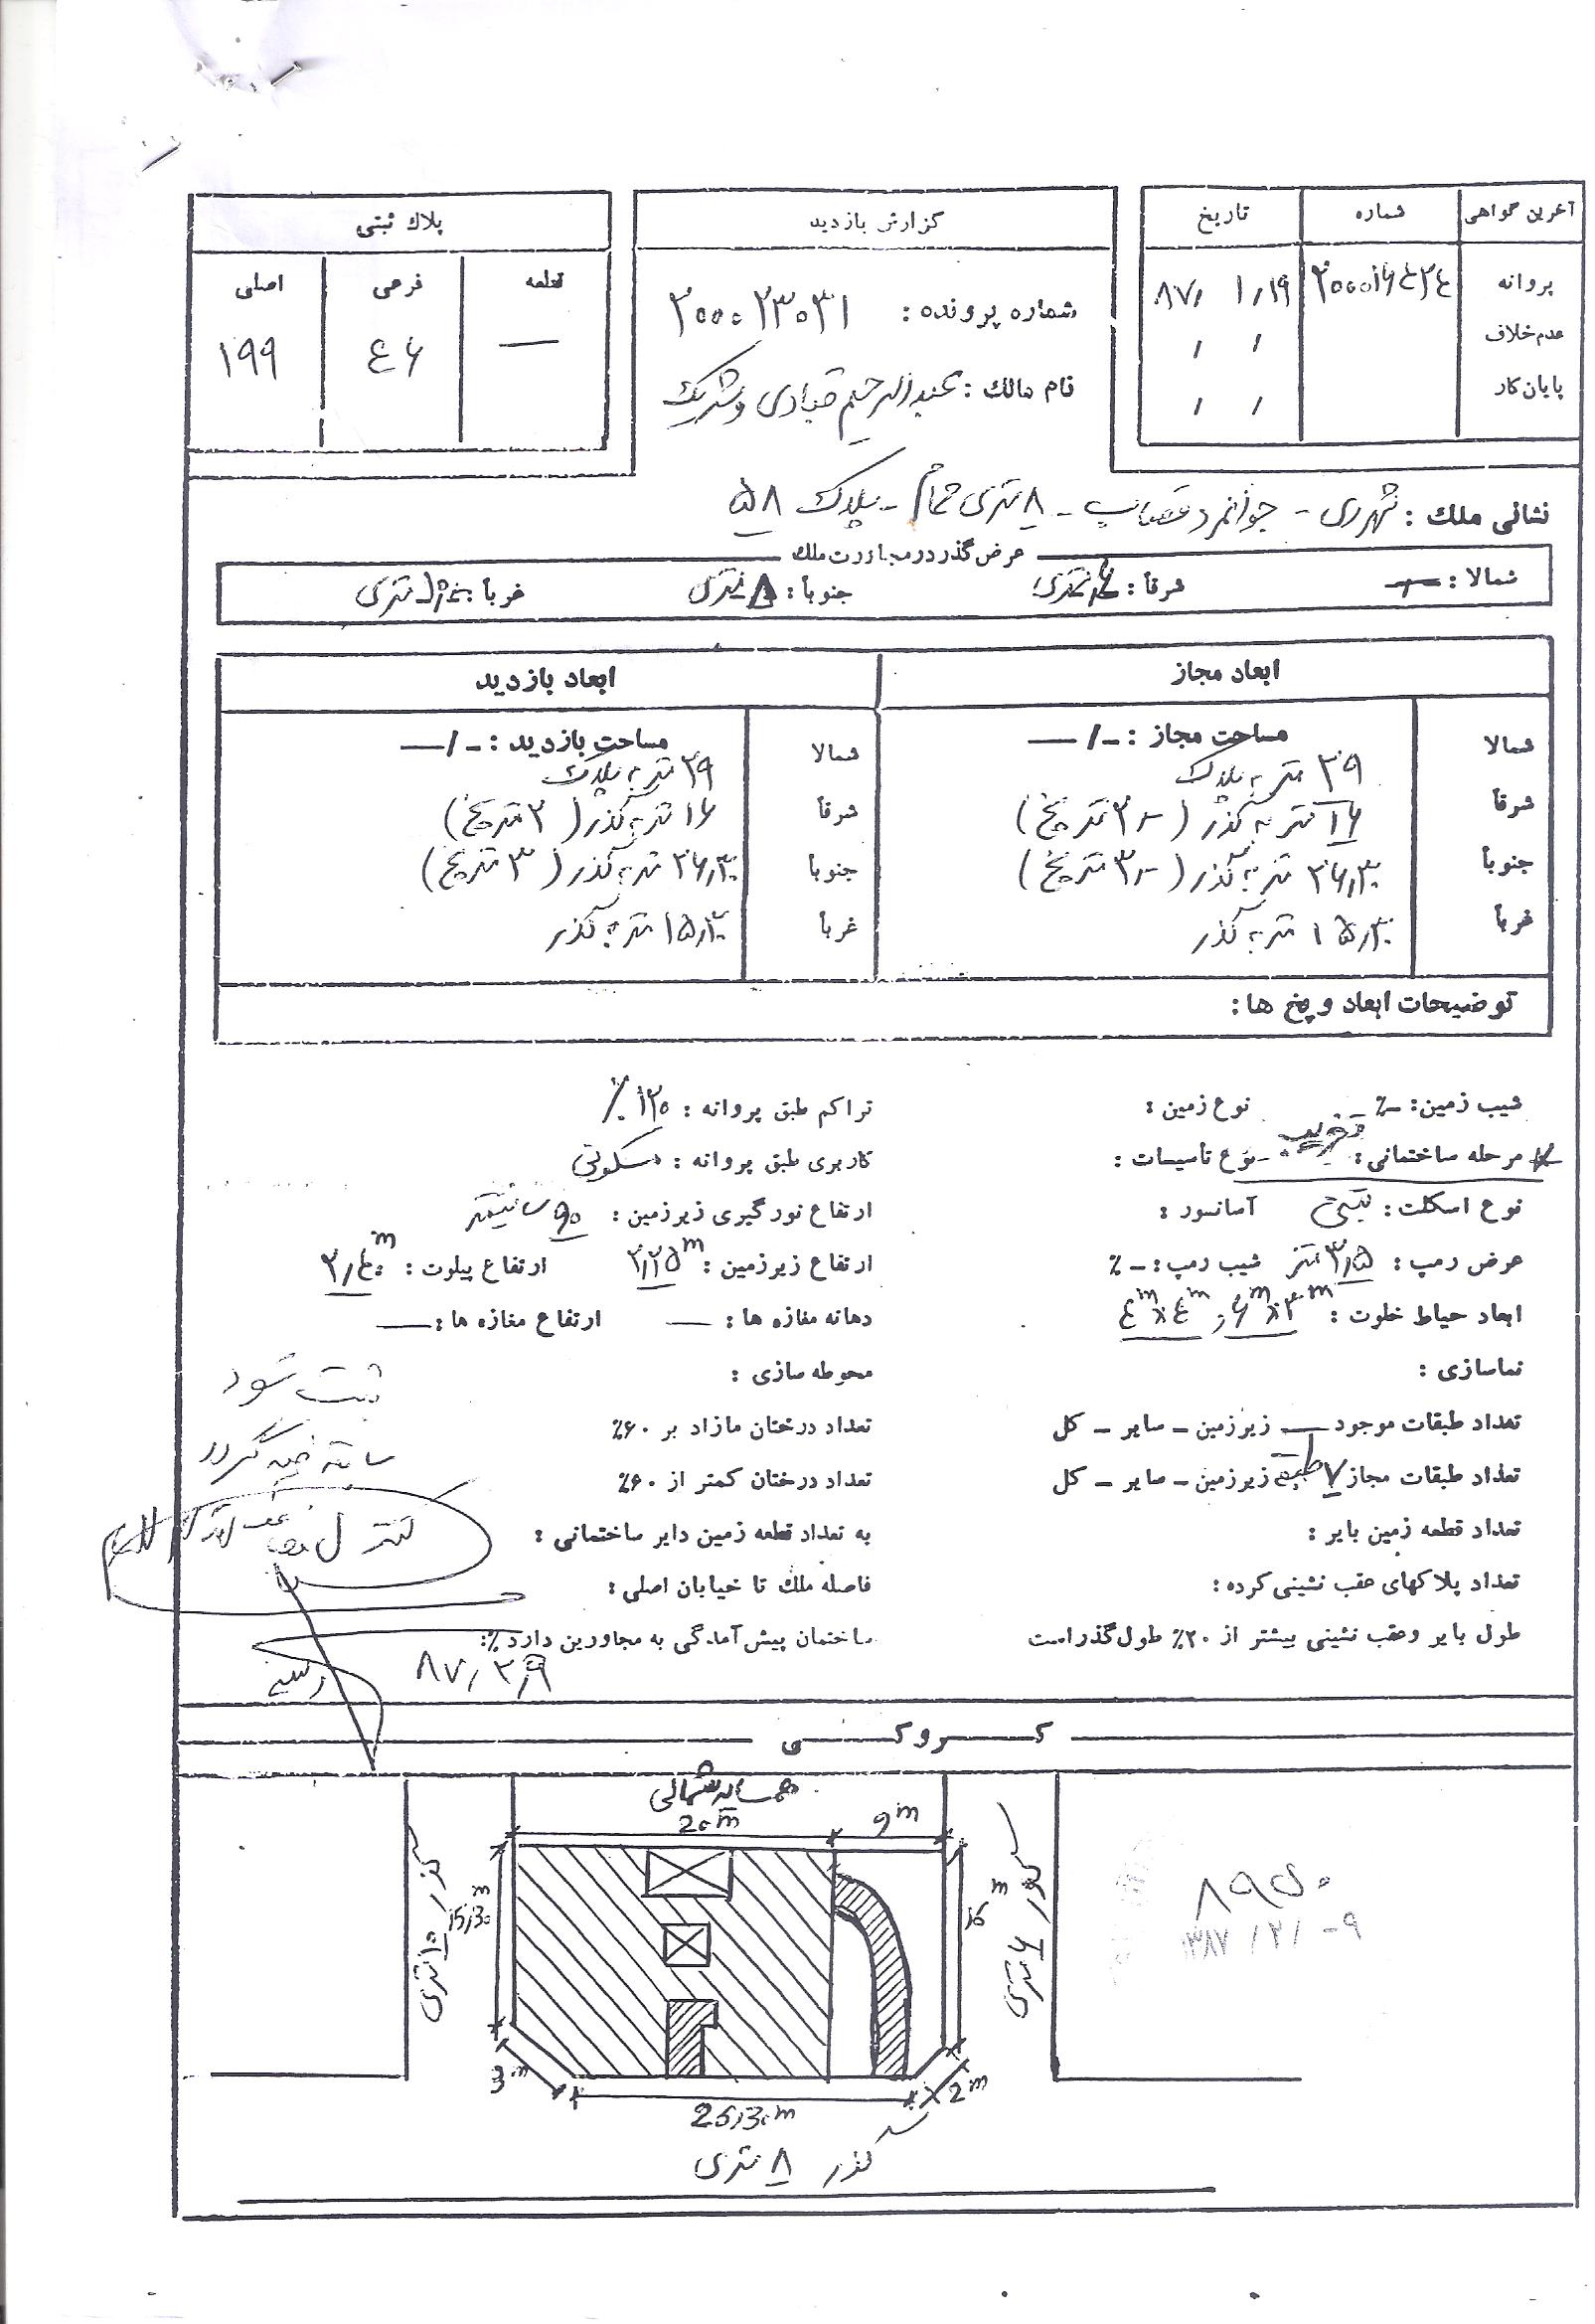 آخرین گواهی شماره تاریخ
پروانه ۸۷/ ۱/۱۹
عدم خلاف / /
پایان کار / /
گزارش بازدید
شماره پرونده : ۲۰۰۰۲۳۰۳۱
نام مالك : عبدالرحیم قبادی و شریک
پلاك ثبتی
قطعه فرعی اصلی
— ۶۴ ۱۹۹
نشانی ملك : شهرری - جوانمرد قصاب - ۸ متری حمام - پلاک ۵۸
عرض گذر در مجاورت ملك
شمالا : — شرقا : ۶ متری جنوبا : ۸ متری غربا : ۱۰ متری
ابعاد مجاز ابعاد بازدید
شمالا مساحت مجاز : -/— شمالا مساحت بازدید : -/—
۲۹ متر به پلاک ۲۹ متر به پلاک
شرقا ۱۶ متر به گذر ( ۲ متر پخ ) شرقا ۱۶ متر به گذر ( ۲ متر پخ )
جنوبا ۲۶/۳۰ متر به گذر ( ۳ متر پخ ) جنوبا ۲۶/۳۰ متر به گذر ( ۳ متر پخ )
غربا ۱۵/۳۰ متر به گذر غربا ۱۵/۳۰ متر به گذر
توضیحات ابعاد و پخ ها :
شیب زمین : -٪ نوع زمین : تراکم طبق پروانه : ۱۲۰٪
مرحله ساختمانی : تخریب نوع تأسیسات : کاربری طبق پروانه : مسکونی
نوع اسکلت : بتنی آسانسور : ارتفاع نورگیری زیرزمین : ۹۰ سانتیمتر
عرض رمپ : ۳/۵ متر شیب رمپ : -٪ ارتفاع زیرزمین : ۲/۲۵m ارتفاع پیلوت : ۲/۴۰m
ابعاد حیاط خلوت : ۶m×۳m و ۴m×۴m دهانه مغازه ها : — ارتفاع مغازه ها : —
نماسازی : محوطه سازی :
ثبت شود
تعداد طبقات موجود — زیرزمین - سایر - کل تعداد درختان مازاد بر ۶۰٪
سابقه ضمیمه گردد
تعداد طبقات مجاز ۷ طبقه زیرزمین - سایر - کل تعداد درختان کمتر از ۶۰٪
تعداد قطعه زمین بایر : به تعداد قطعه زمین دایر ساختمانی :
کنترل
تعداد پلاکهای عقب نشینی کرده : فاصله ملك تا خیابان اصلی :
طول بایر و عقب نشینی بیشتر از ۲۰٪ طول گذر است ساختمان پیش آمدگی به مجاورین دارد ٪:
۸۷/۲/۹
کروکی
همسایه شمالی
20m 9m
گذر ۱۰ متری
15/30m
گذر ۶ متری
16m
3m 2m
26/30m
گذر ۸ متری
۸۹۵۰
۱۳۸۷ /۲/ -۹